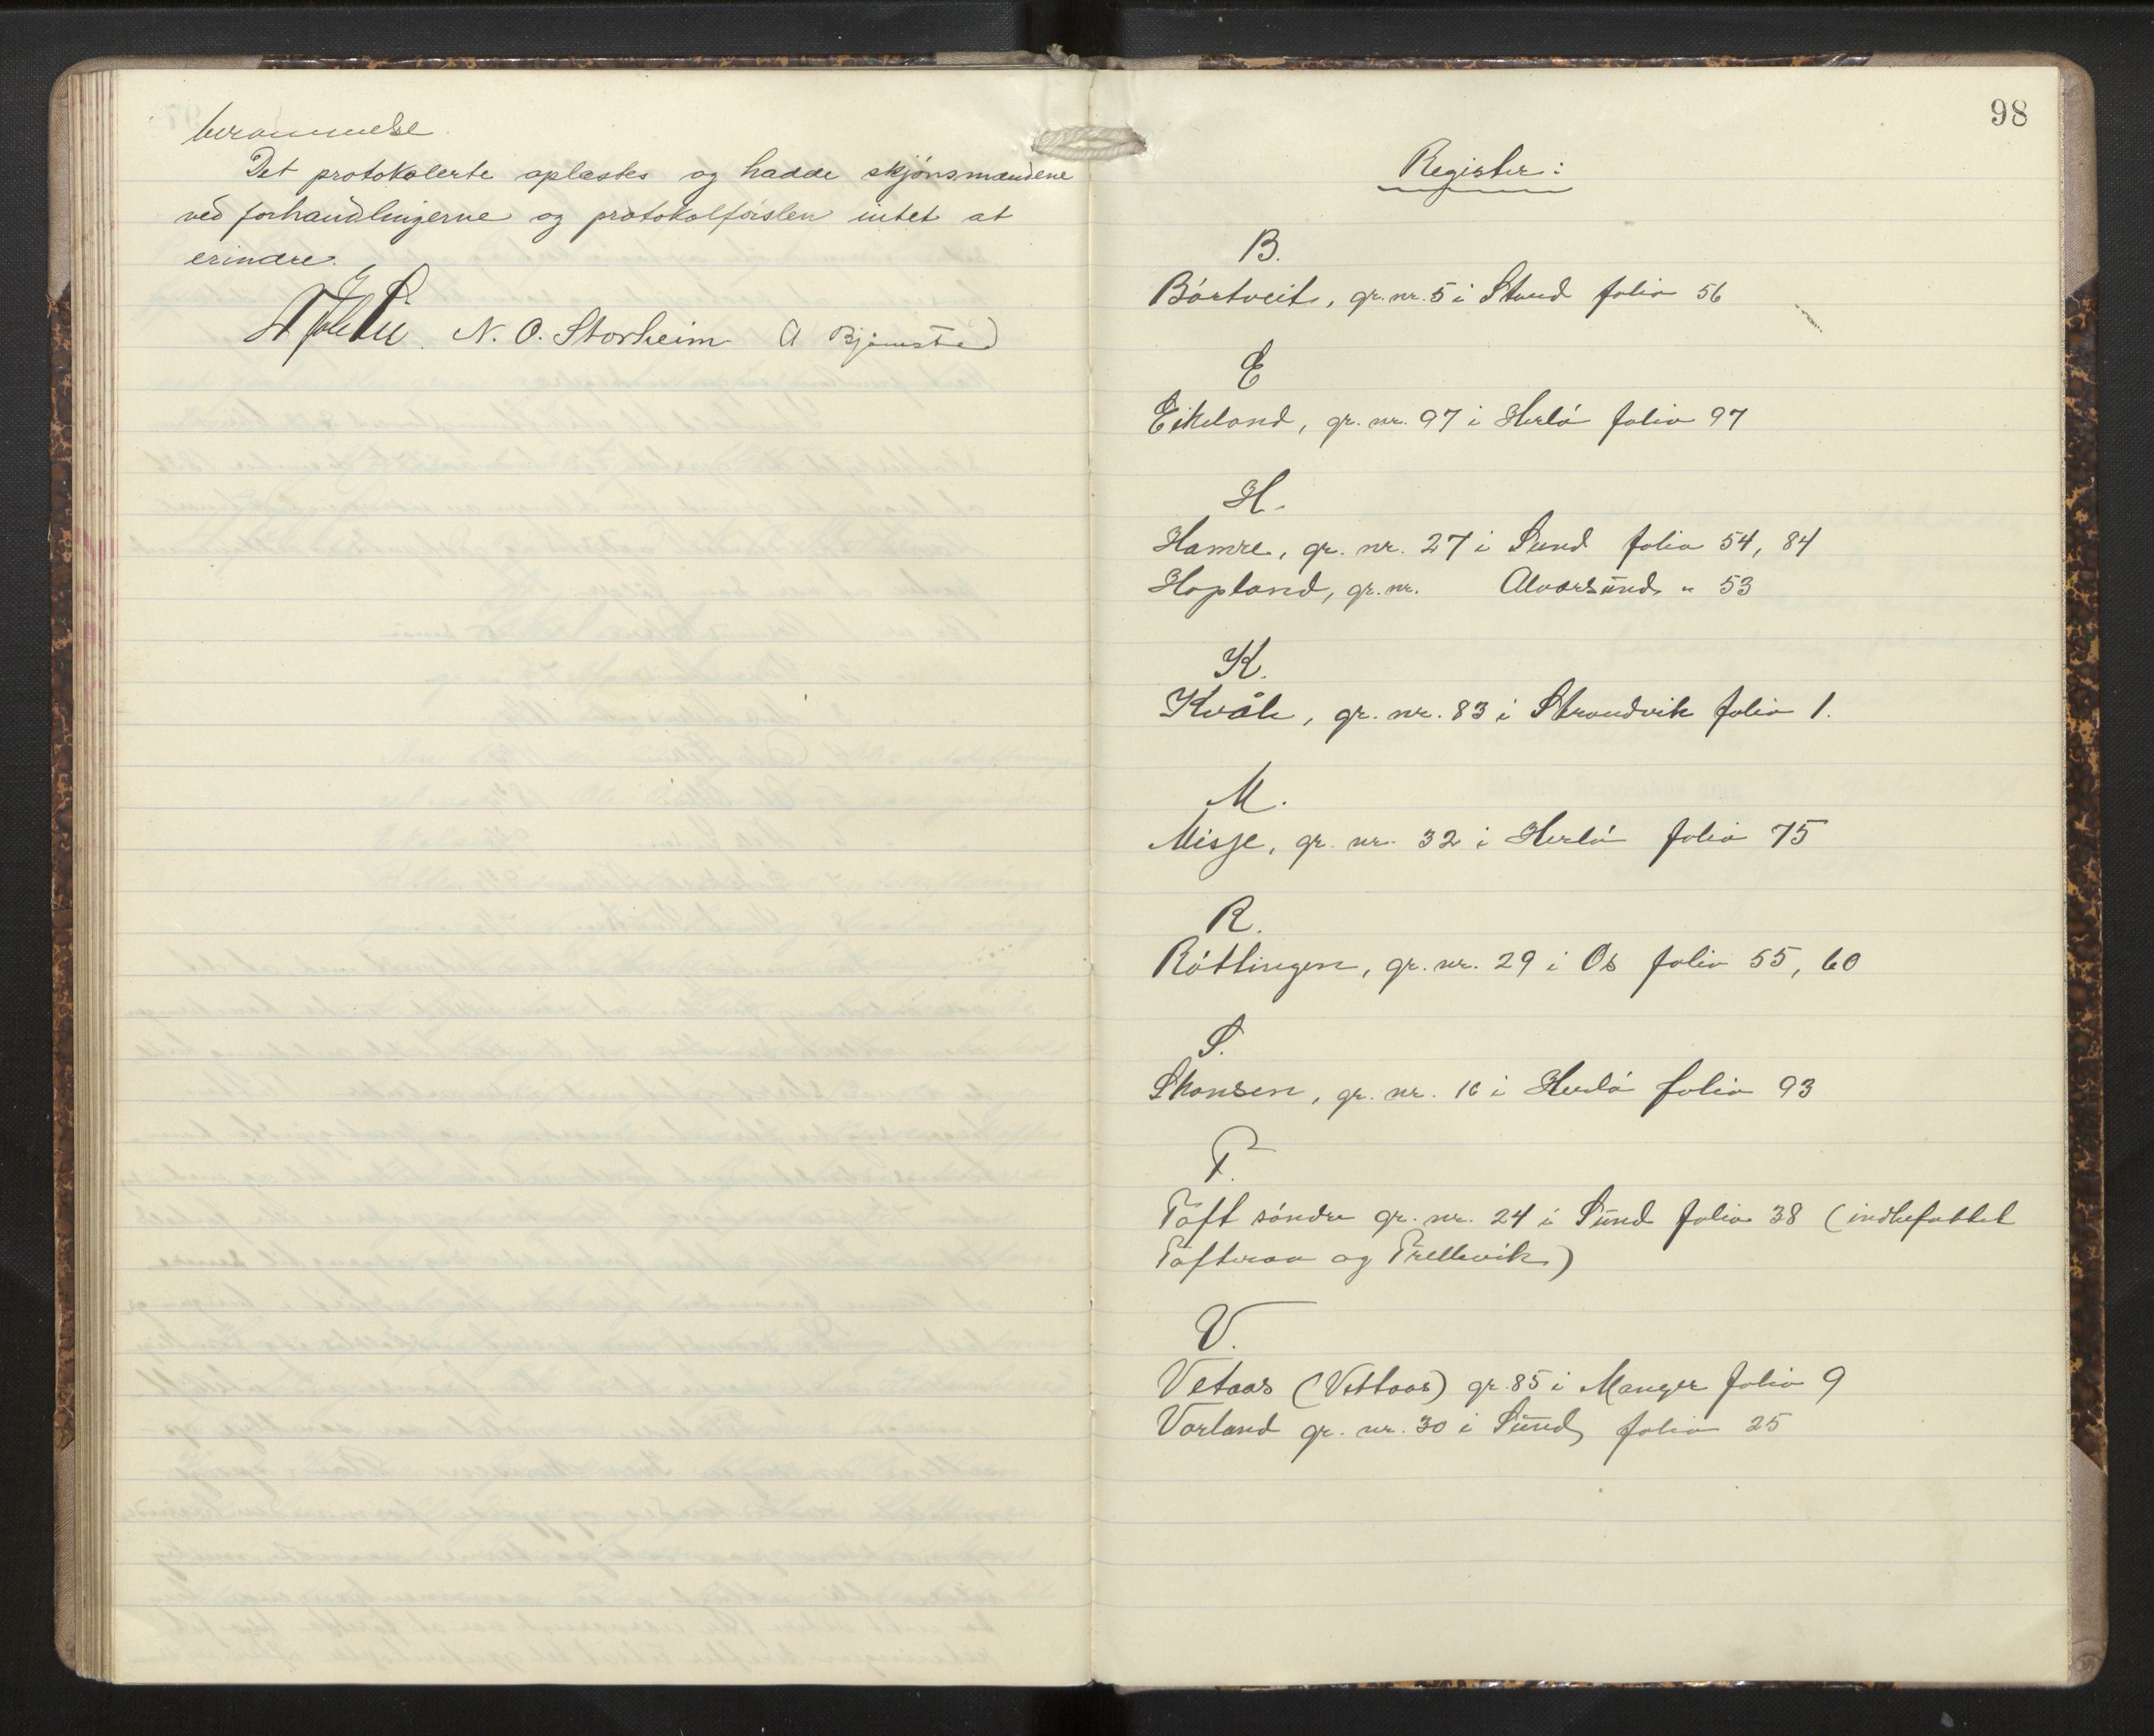 berammelse.
Det protokolerte oplæstes og hadde skjönsmændene
ved forhandlingerne og protokolförslen intet at
erindre.
N. O. Storheim A Bjørnstad
98
Register:
B.
Börtveit, gr. nr. 5 i Stord folio 56
E
Eikeland, gr. nr. 97 i Herlö folio 97
H.
Hamre, gr. nr. 27 i Sund folio 54, 84
Hopland, gr. nr. Alversund " 53
K.
Kvåle, gr. nr. 83 i Strandvik folio 1.
M.
Misje, gr. nr. 32 i Herlö folio 75
R.
Röttingen, gr. nr. 29 i Os folio 55, 60
S.
Skansen, gr. nr. 16 i Herlö folio 93
T.
Toft söndre gr. nr. 24 i Sund folio 38 (indbefattet
Tofteraa og Trellevik)
V.
Vetaas (Vettaas) gr. 85 i Manger folio 9
Vorland gr. nr. 30 i Sund, folio 25